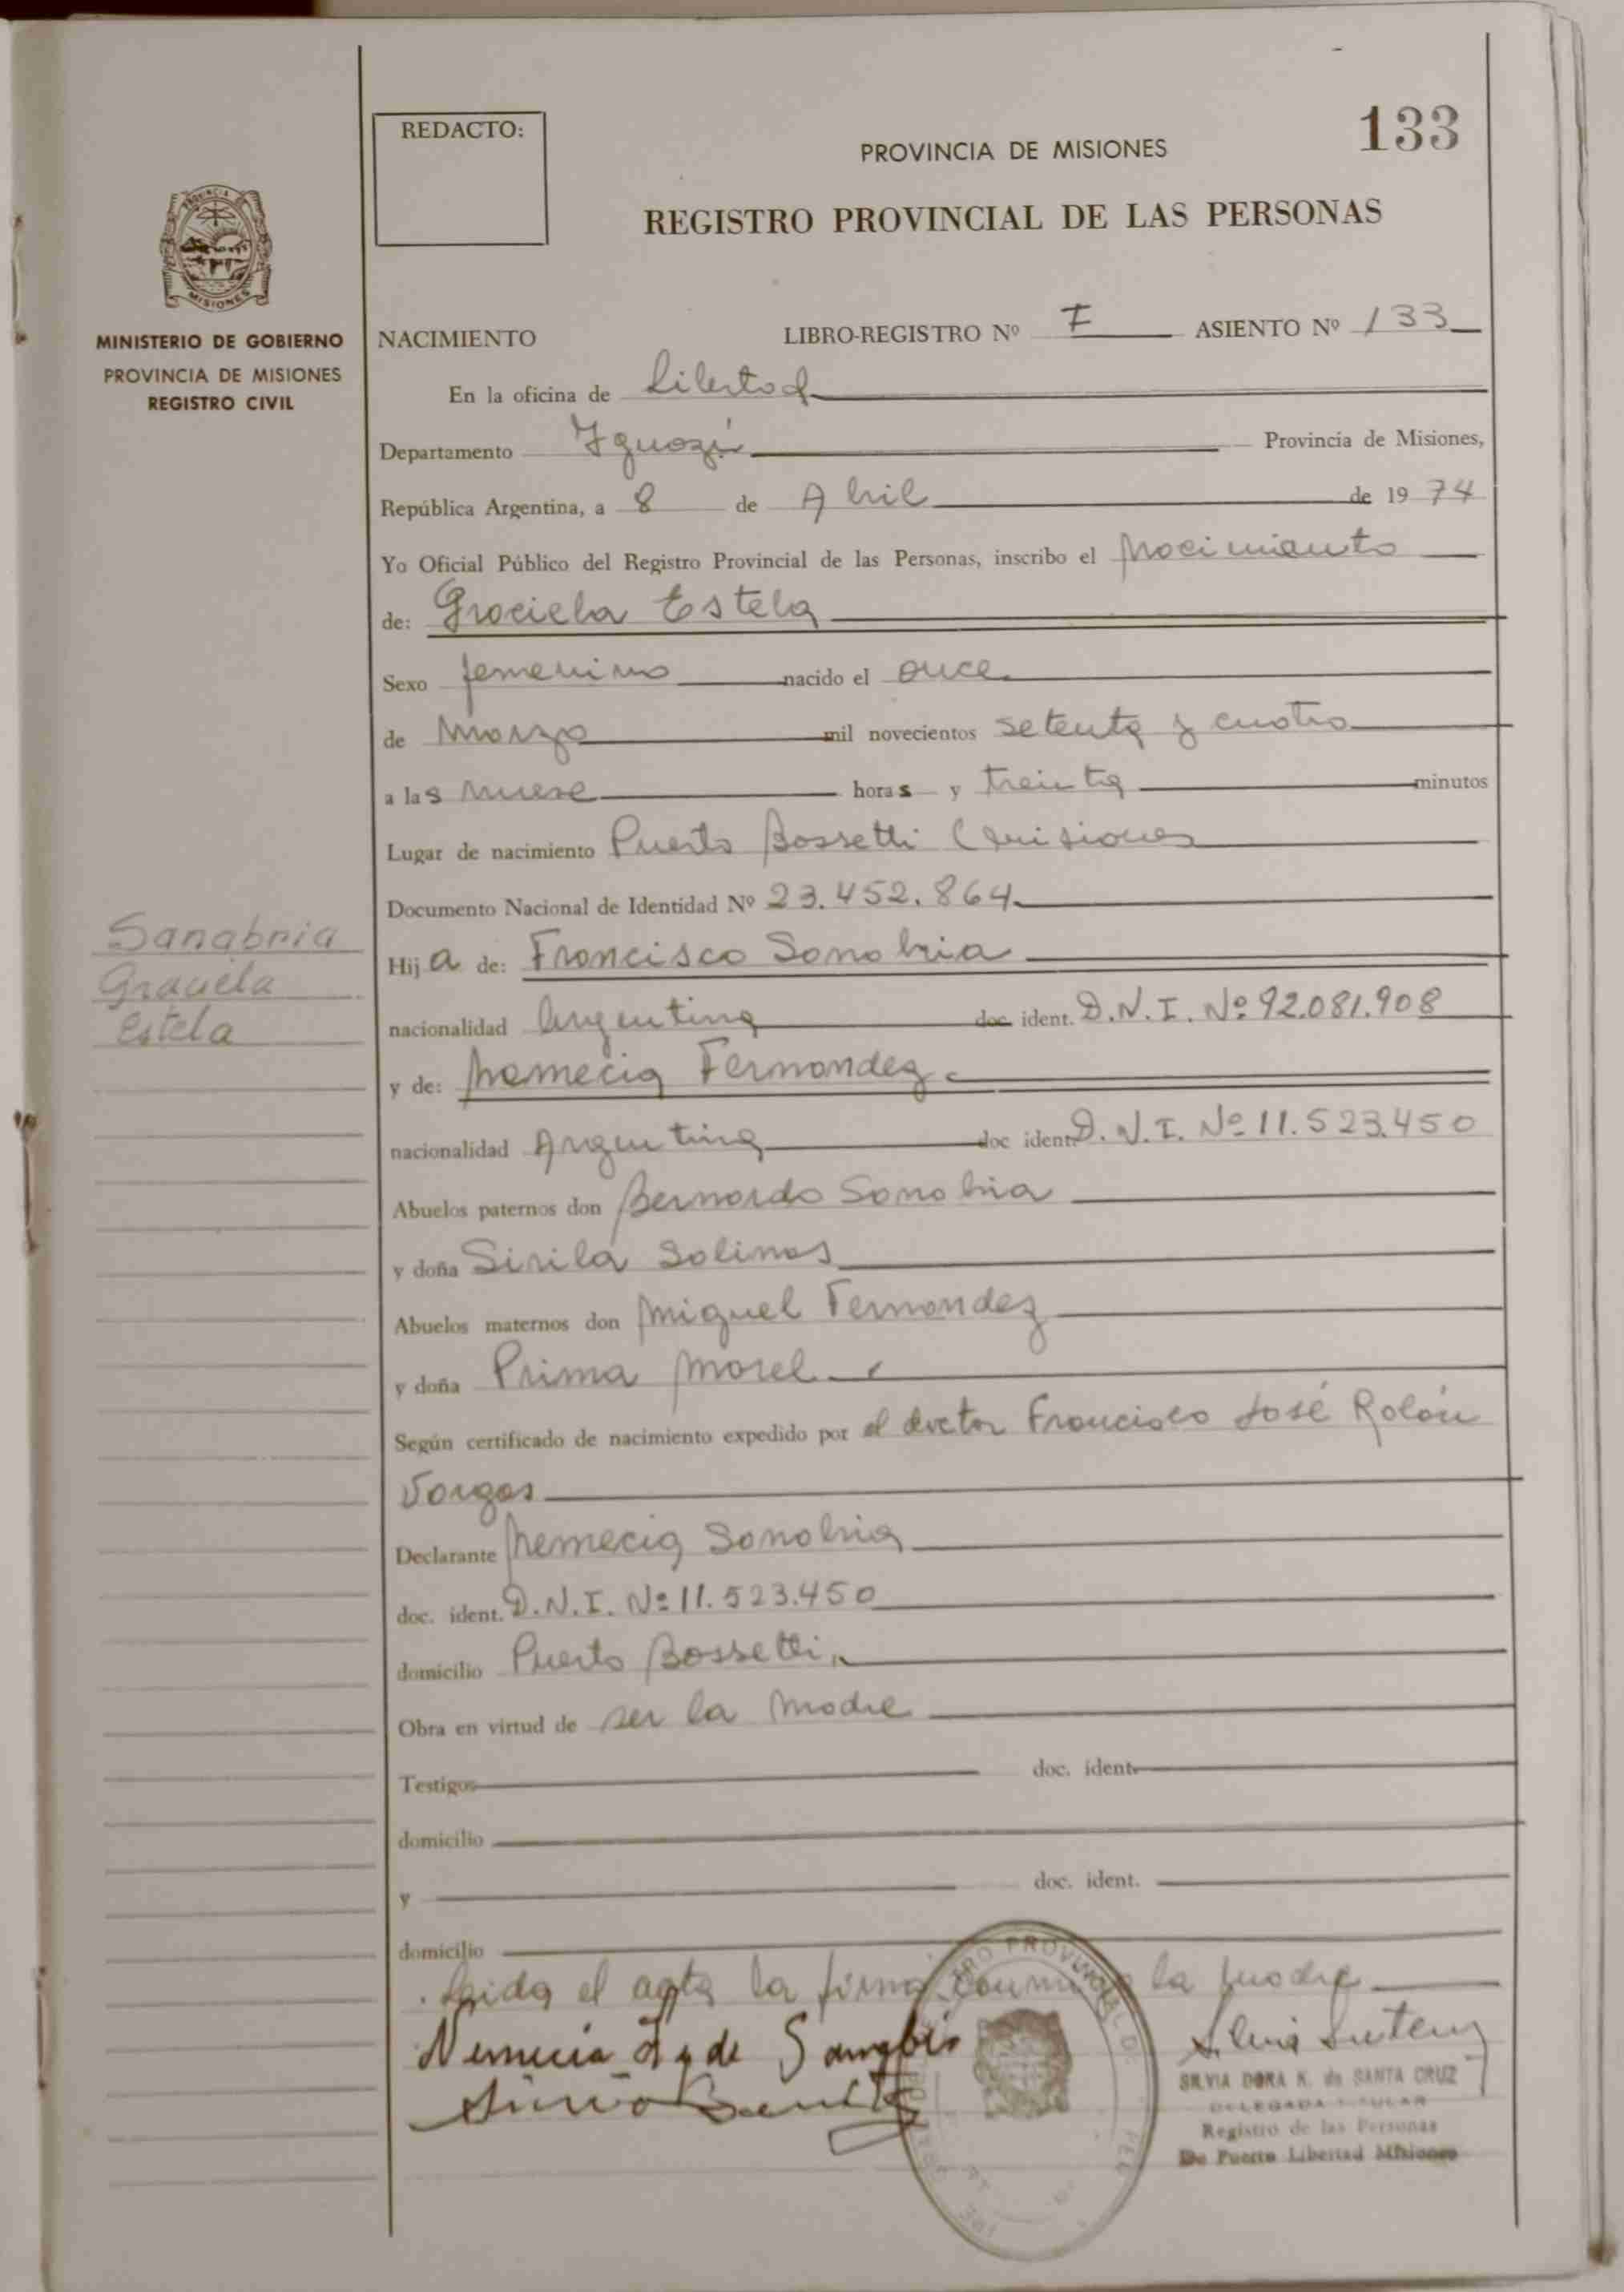 REDACTO:
PROVINCIA DE MISIONES
133
REGISTRO PROVINCIAL DE LAS PERSONAS
PROVINCIA
MISIONES
MINISTERIO DE GOBIERNO
PROVINCIA DE MISIONES
REGISTRO CIVIL
NACIMIENTO LIBRO-REGISTRO Nº 7 ASIENTO Nº 133
En la oficina de Libertad
Departamento Iguazú Provincia de Misiones,
República Argentina, a 8 de Abril de 19 74
Yo Oficial Público del Registro Provincial de las Personas, inscribo el Nacimiento
de: Graciela Estela
Sexo femenino nacido el once
de Marzo mil novecientos setenta y cuatro
a las nueve horas y treinta minutos
Lugar de nacimiento Puerto Bossetti (Misiones
Documento Nacional de Identidad Nº 23.452.864
Sanabria
Graciela
Estela
Hija de: Francisco Sanabria
nacionalidad Argentina doc. ident. D.N.I. Nº 92.081.908
y de: Nemecia Fernandez
nacionalidad Argentina doc ident. D.N.I. Nº 11.523.450
Abuelos paternos don Bernardo Sanabria
y doña Sirila Salinas
Abuelos maternos don Miguel Fernandez
y doña Prima Morel
Según certificado de nacimiento expedido por el doctor Francisco José Rolón
Vargas
Declarante Nemecia Sanabria
doc. ident. D.N.I. Nº 11.523.450
domicilio Puerto Bossetti
Obra en virtud de ser la Madre
Testigos doc. ident.
domicilio
y doc. ident.
domicilio
Leida el acta la firma conmigo la madre
Nemecia F. de Sanabria
SILVIA DORA K. de SANTA CRUZ
DELEGADA TITULAR
Registro de las Personas
De Puerto Libertad Misiones